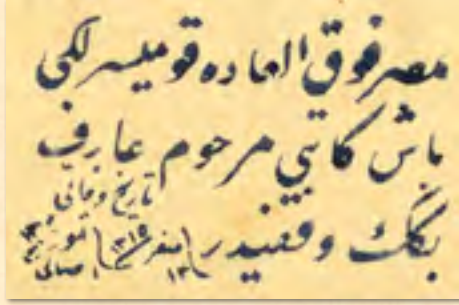 مصر فوق العاده قوميسرلكى
باش كاتبى مرحوم عارف
بكك وقفيدر
تاريخ وفاتى
صفر ١٣١٥